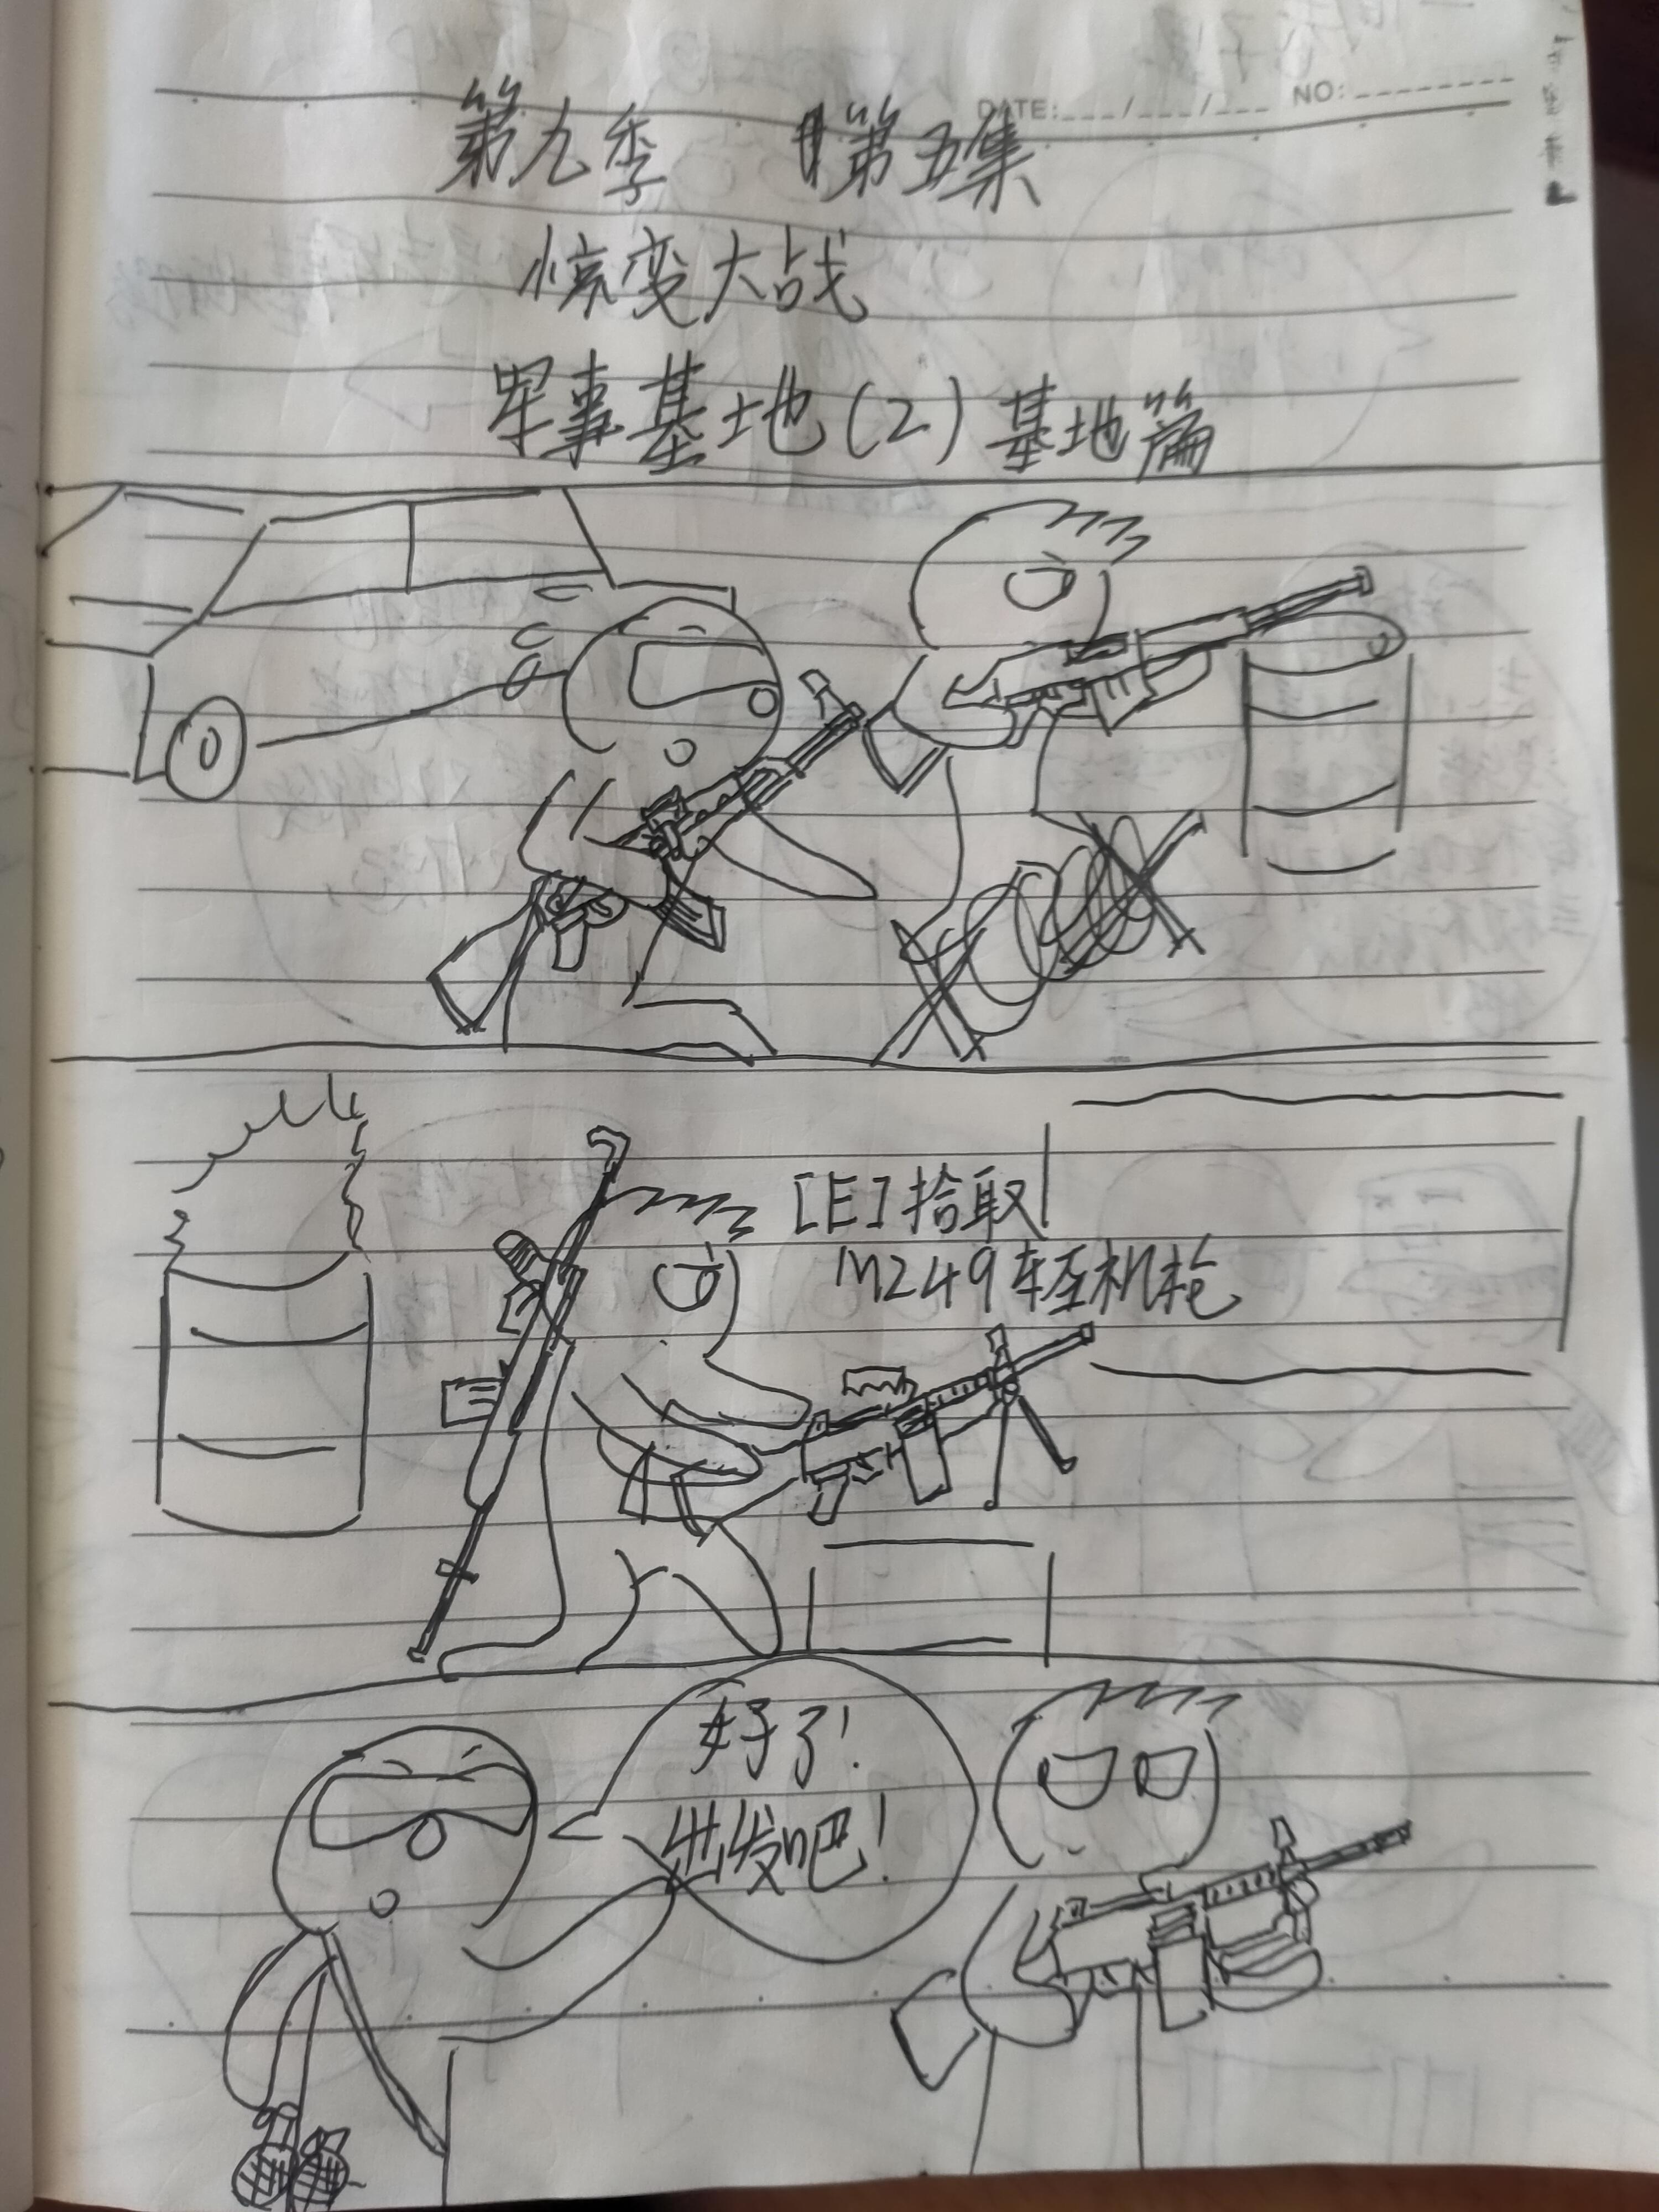 DATE:___/___/___ NO:_________
第九季 第五集
惊变大战
军事基地(2)基地篇
[E]拾取
M249轻机枪
好了!
出发吧!